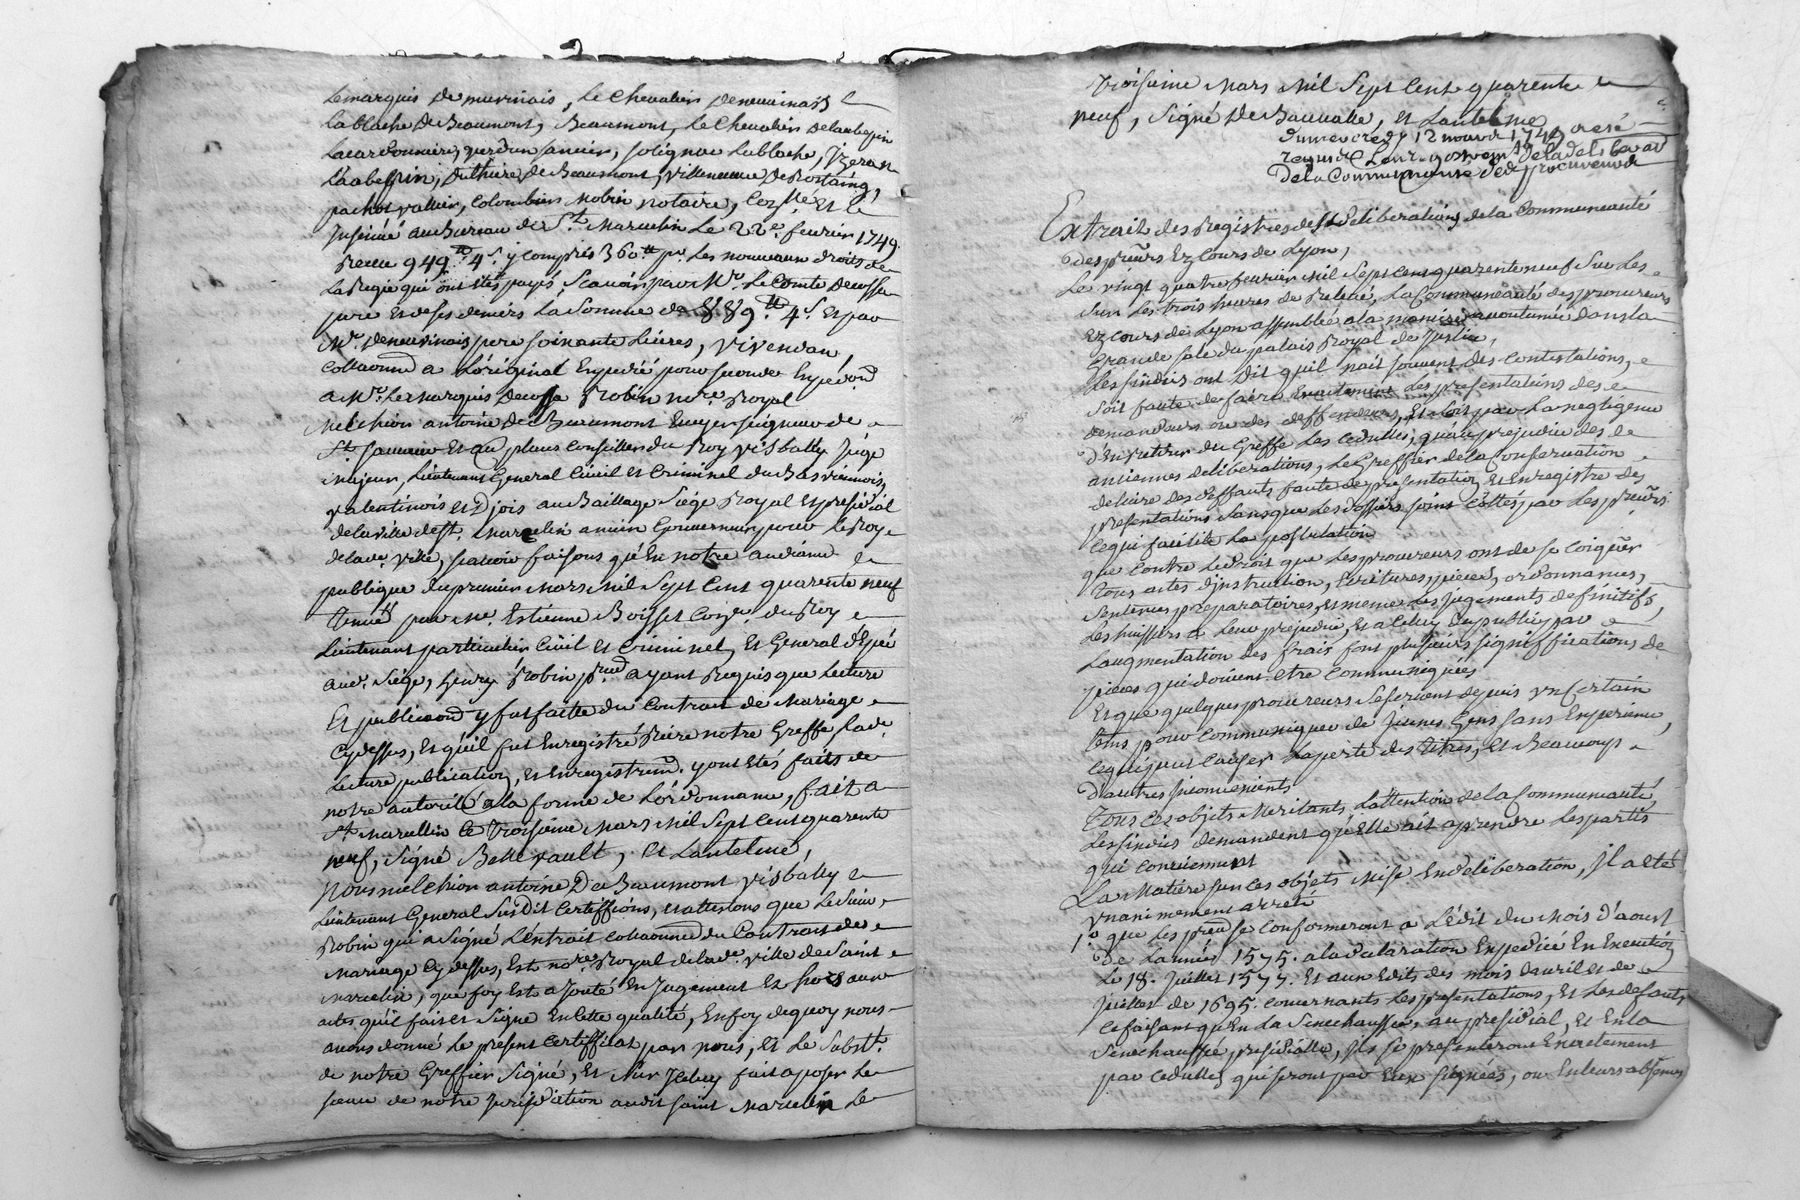 Le marquis de murinais, Le Chevalier de murinais
La blache De Beaumont, Beaumont, Le Chevalier
Lacardonniere, verdun Janvier, Solignac Lablache, Izeran
De Beaumont, Villeneuve De
pachot valluier, Colombier Robin notaire, Et
au Bureau de St. Marcelin Le 22e. fevrier 1749
Receu 949tt. 4s. y compris 360tt pr. Les nouveaux droits de
La Regie qui ont étés payés, Scavoir par Mr. Le Comte
pere et de ses deniers La Somme de 889tt 4s. Et par
Mr. De murinais pere soixante Livres, Vivendau,
a Lóriginal Expedié pour seconde
a Mr. Le Marquis Robin nore. Royal
Melchior antoine De Beaumont Ecuyer seigneur de
St. Et Conseiller du Roy visbally Juge
Majeur, Lieutenant General Civil et Criminel du Bas viennois
valentinois et Diois au Baillage Siége Royal et presidial
de la ville de St. Marcelin ancien Gouverneur pour Le Roy
de lade. ville, scavoir faisons qu'En notre audiance
publique du premier Mars Mil Sept Cent quarente neuf
Tenuë par Me. Estienne Boisset Coner. du Roy
Lieutenant particulier Civil et Criminel, Et General d'Epée
aud. Siége, henry Robin ayant Requis que Lecture
Et y fut faitte du Contrat de Mariage
Cy dessus, Et qu'il fut Enregistré Riere notre Greffe Lade.
Lecture publication, et Enregistremt. y ont Etés faits de
notre autorité a la forme de L'ordonnance, fait a
St. Marcellin Ce Troisiéme Mars Mil Sept Cent quarente
neuf, Signé Bellevault, Et Lantelme,
Nous melchior antoine De Beaumont visbally
Lieutenant General Susdit Certiffions, et attestons que Le Sieur
Robin qui a Signé L'éxtrait du Contrat de
Mariage Cy dessus, Est nore. Royal de lade. ville de Saint
Marcelin, que foy Est ajouté En Jugement Et hors aux
actes qu'il fait et Signe En Cette qualité, En foy de quoy nous
avons donné Le present Certifficat par nous, Et Le Substt.
de notre Greffier Signé, Et Sur Iceluy fait aposer Le
sceau de notre Jurisdiction audit saint Marcelin Le
troisieme Mars Mil Sept Cent quarente
neuf, Signé De Bauvalle, Et Lantelme
Du mercredy 12 1749
De la Communauté De
Extrait des Registres des Deliberations de la Communeauté
des preurs Ez Cours de Lyon,
Le vingt quatre fevrier Mil Sept Cent quarente neuf Sur Les
Sur Les trois heures de Relevé, La Communeauté des procureurs
Ez Cours de Lyon assemblée a la maniere accoutumée dans la
Grande Sale du palais Royal de Justice,
Les Sindics ont Dit qu'il nait souvent des Contestations,
soit faute de faire Exactement des presentations des
demandeurs ou des deffendeurs, Et soit par La negligence
d'En retirer du Greffe Les Cedulles, qu'au prejudice des
anciennes deliberations, Le Greffier de la Conservation
delivre des deffauts faute de presentation, Et Enregistre des
presentations sans que Les dossiers soint Cottés par Les preurs
Ce qui facilite La postulation
que Contre Le Droit que Les procureurs ont de
Tous actes d'instruction, Ecritures, pieces, ordonnances,
Sentences preparatoires, et meme Les Jugements definitifs,
Les huissiers a Leur prejudice, Et a Celuy du public par
L'augmentation des frais font plusieurs signiffications de
pieces qui doivent etre Communiquées
Et que quelques procureurs Se servent depuis un Certain
tems pour Communiquer de Jeunes Gens sans Experience,
Ce qui peut Causer La perte des Titres, Et Beaucoup
D'autres Inconvenients
Tous Ces objets Meritants L'attention de la Communeauté
Les sindics demandent qu'Elle ait a prendre Les partis
qui Conviennent
La Matiere sur Ces objets Mise En deliberation, Il a eté
unanimement arreté
1o. que Les preurs se Conformeront a L'édit du Mois D'aoust
De L'année 1575. a la declaration Expediée En Execution
Le 18. Juillet 1577. Et aux Edits des mois d'avril et de
Juillet de 1695. Concernants Les presentations, Et Les defauts
Ce faisant qu'En La Senechaussée, au presidial, Et En la
Senechaussée presidialle, Ils se presenteront Exactement
par Cedulles qui seront par Eux signées, ou En Leurs absences